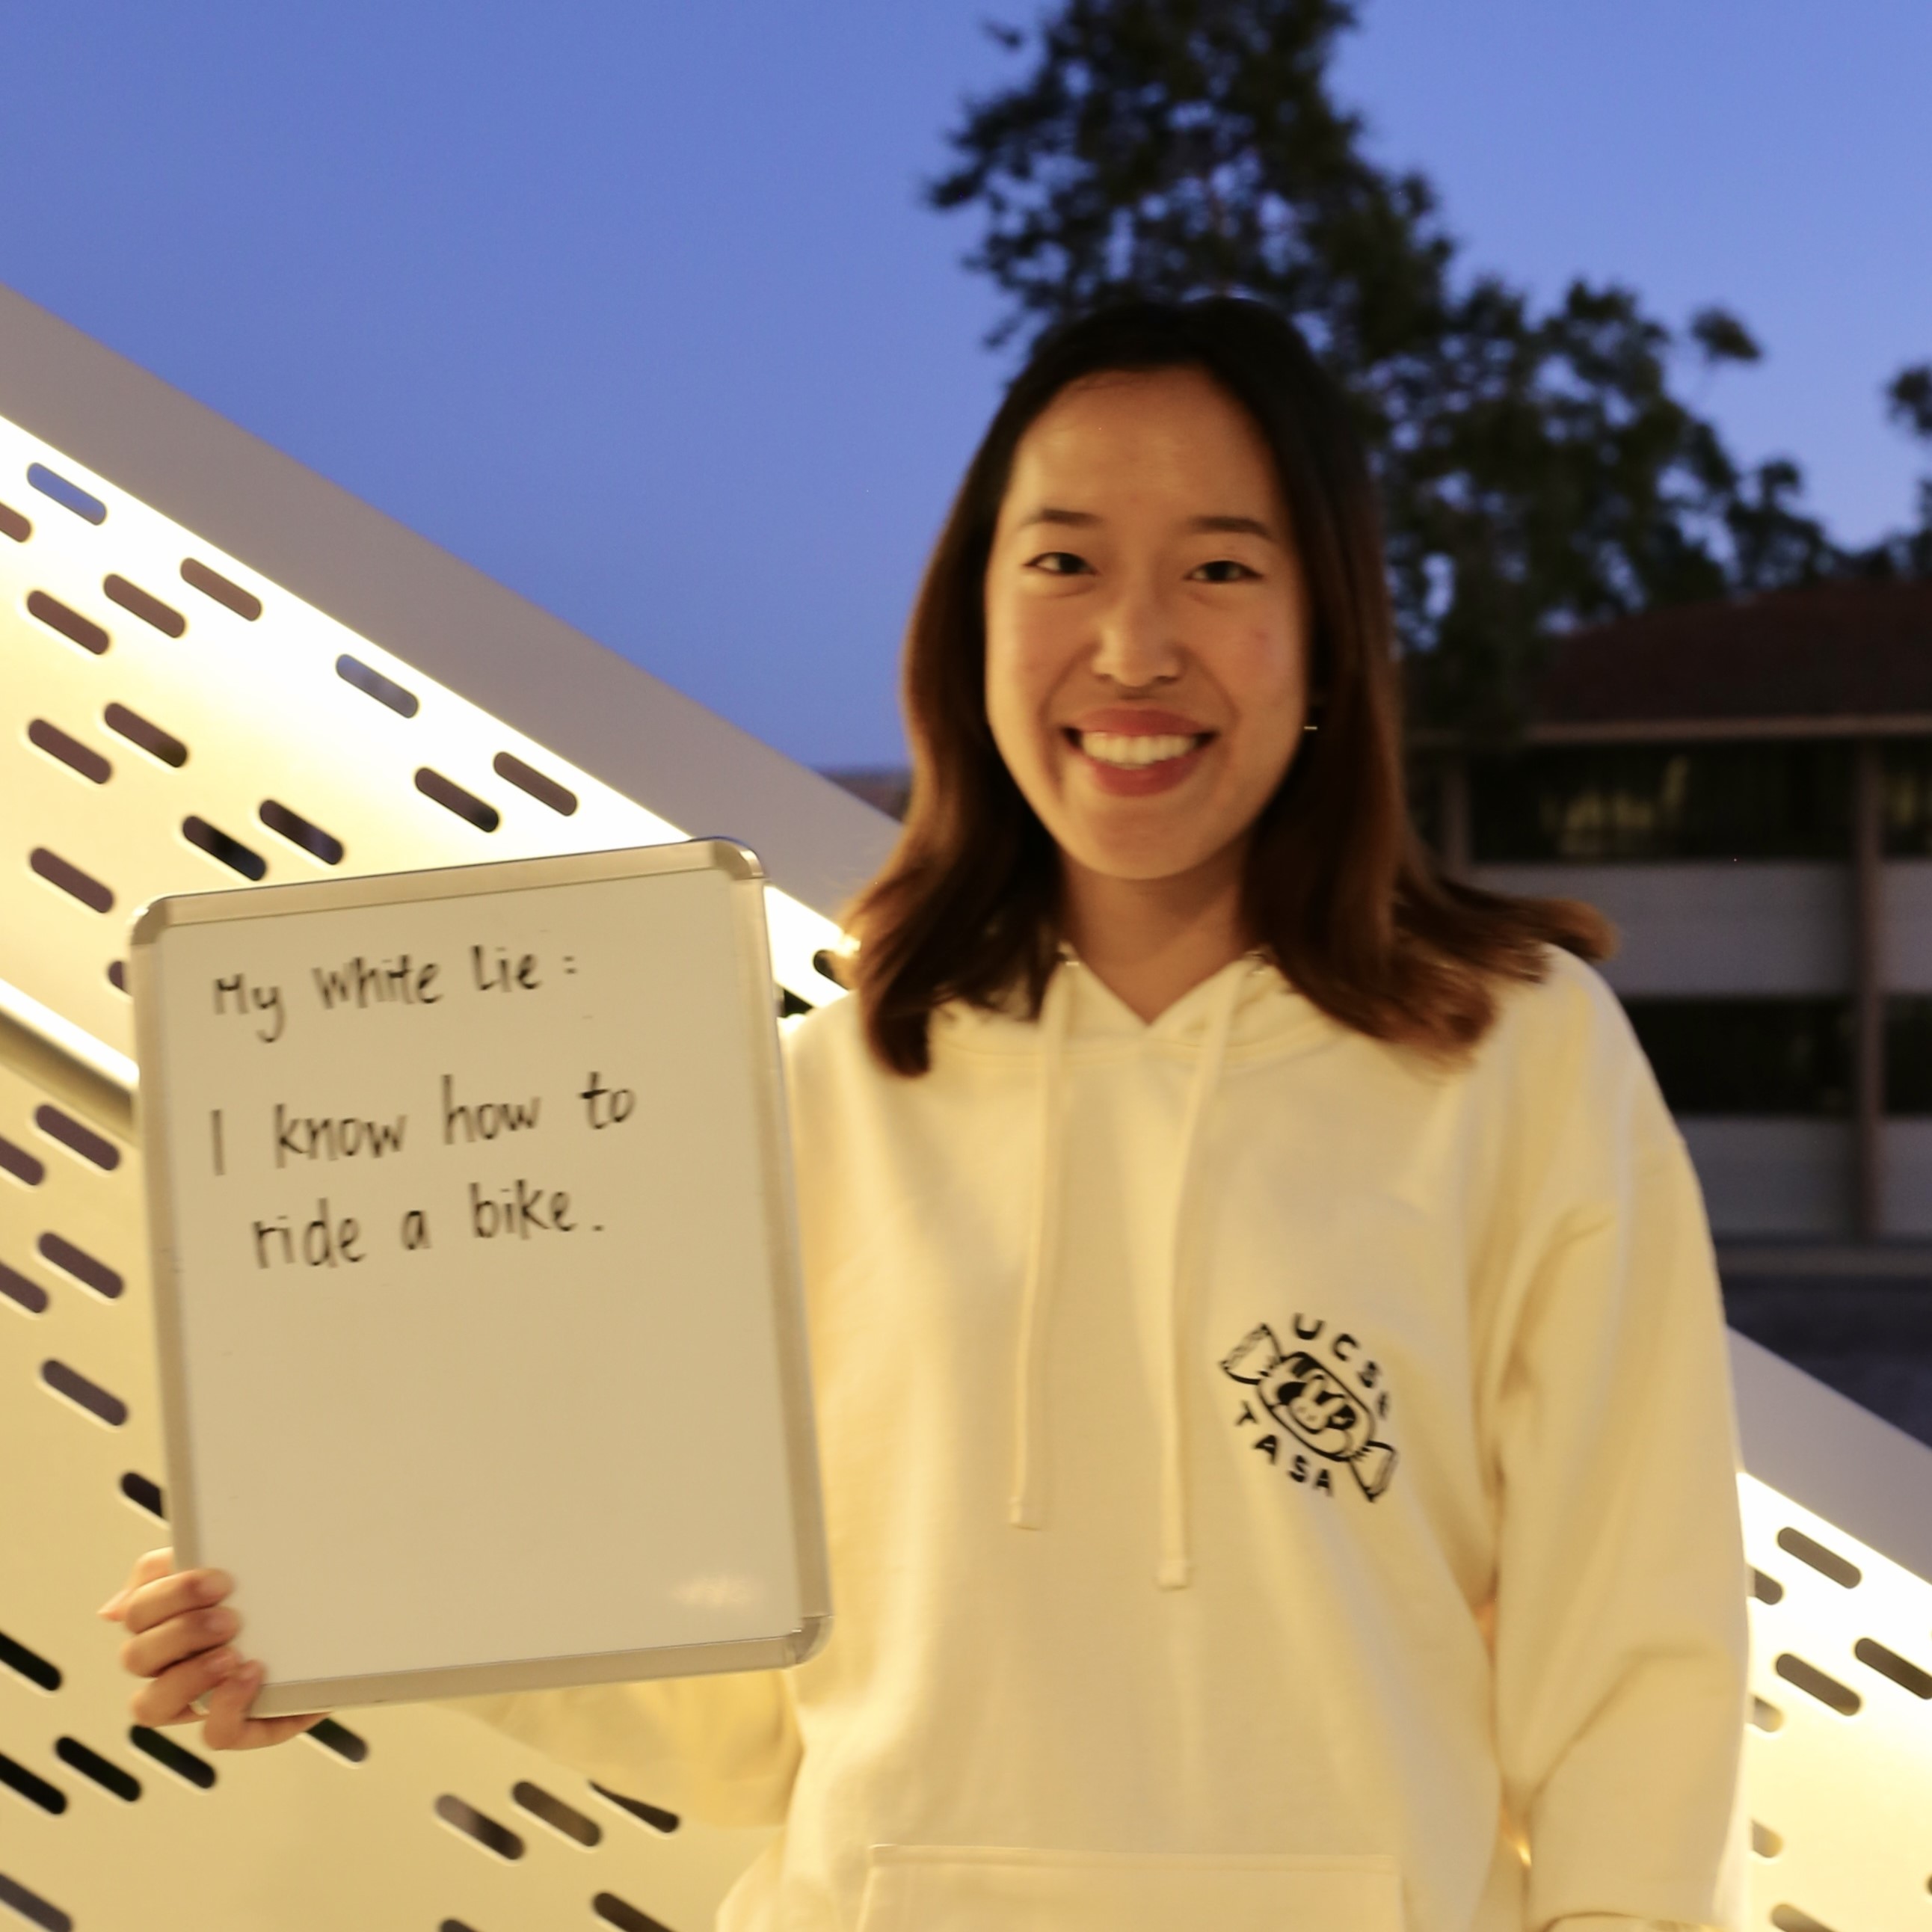 My White Lie :
I know how to
ride a bike.
UCSB
TASA